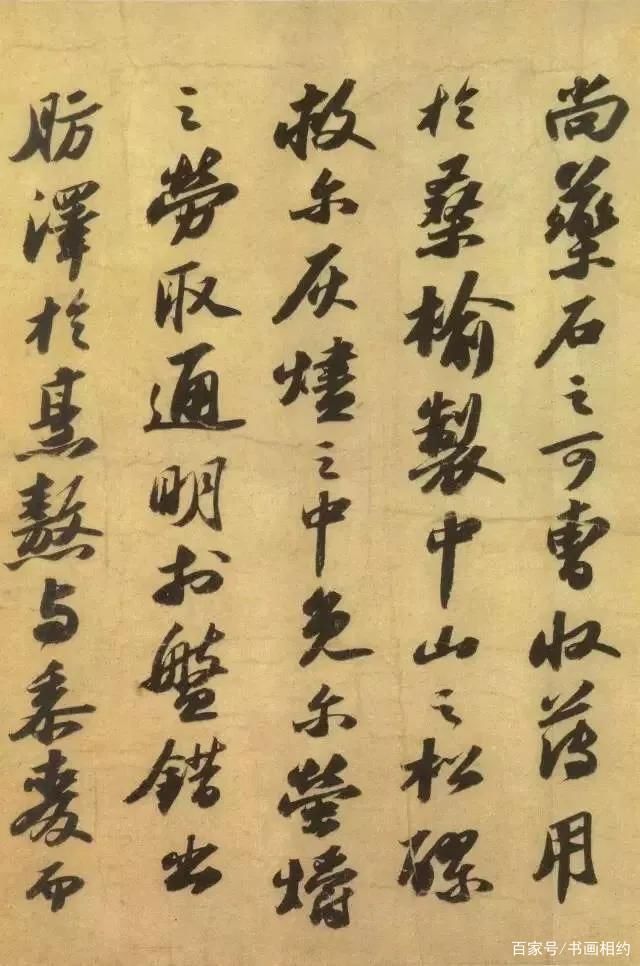 尚藥石之可曹收薄用
於桑榆製中山之松醪
救尓灰燼之中免尓螢爝
之勞取通明於盤錯出
肪澤於烹熬与黍麥而
百家号/书画相约